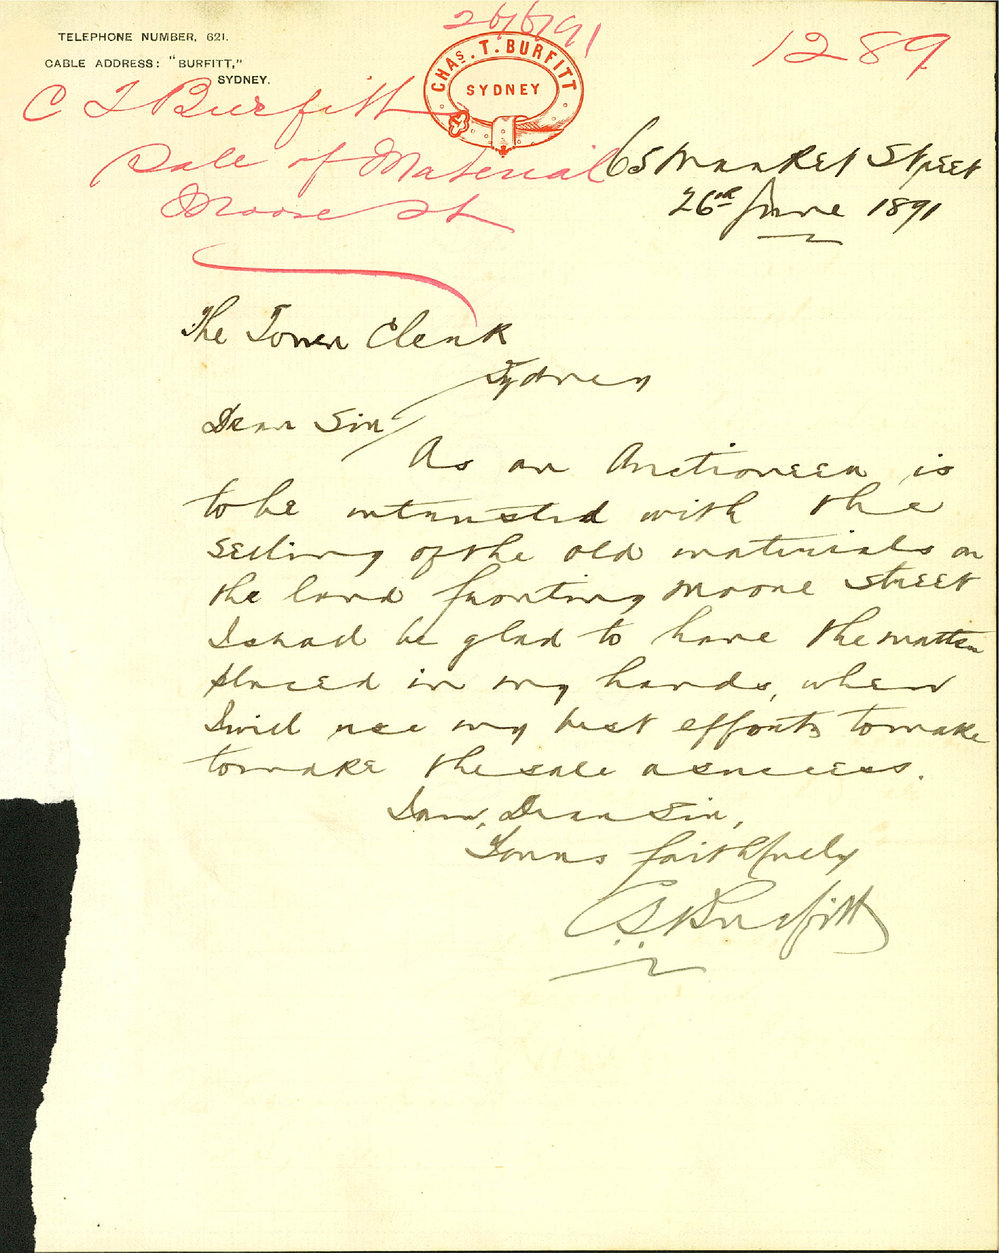 TELEPHONE NUMBER, 621.
CABLE ADDRESS: "BURFITT,"
SYDNEY.
26/6/91
CHAS. T. BURFITT
SYDNEY
1289
C T Burfitt
Sale of Material
Moore St
65 Market Street
26th June 1891
The Town Clerk
Sydney
Dear Sir
As an Auctioneer is
to be intrusted with the
selling of the old materials on
the land fronting Moore Street
I shall be glad to have the matter
placed in my hands, when
I will use my best efforts to make
to make the sale a success.
I am, Dear Sir,
Yours faithfully
C T Burfitt